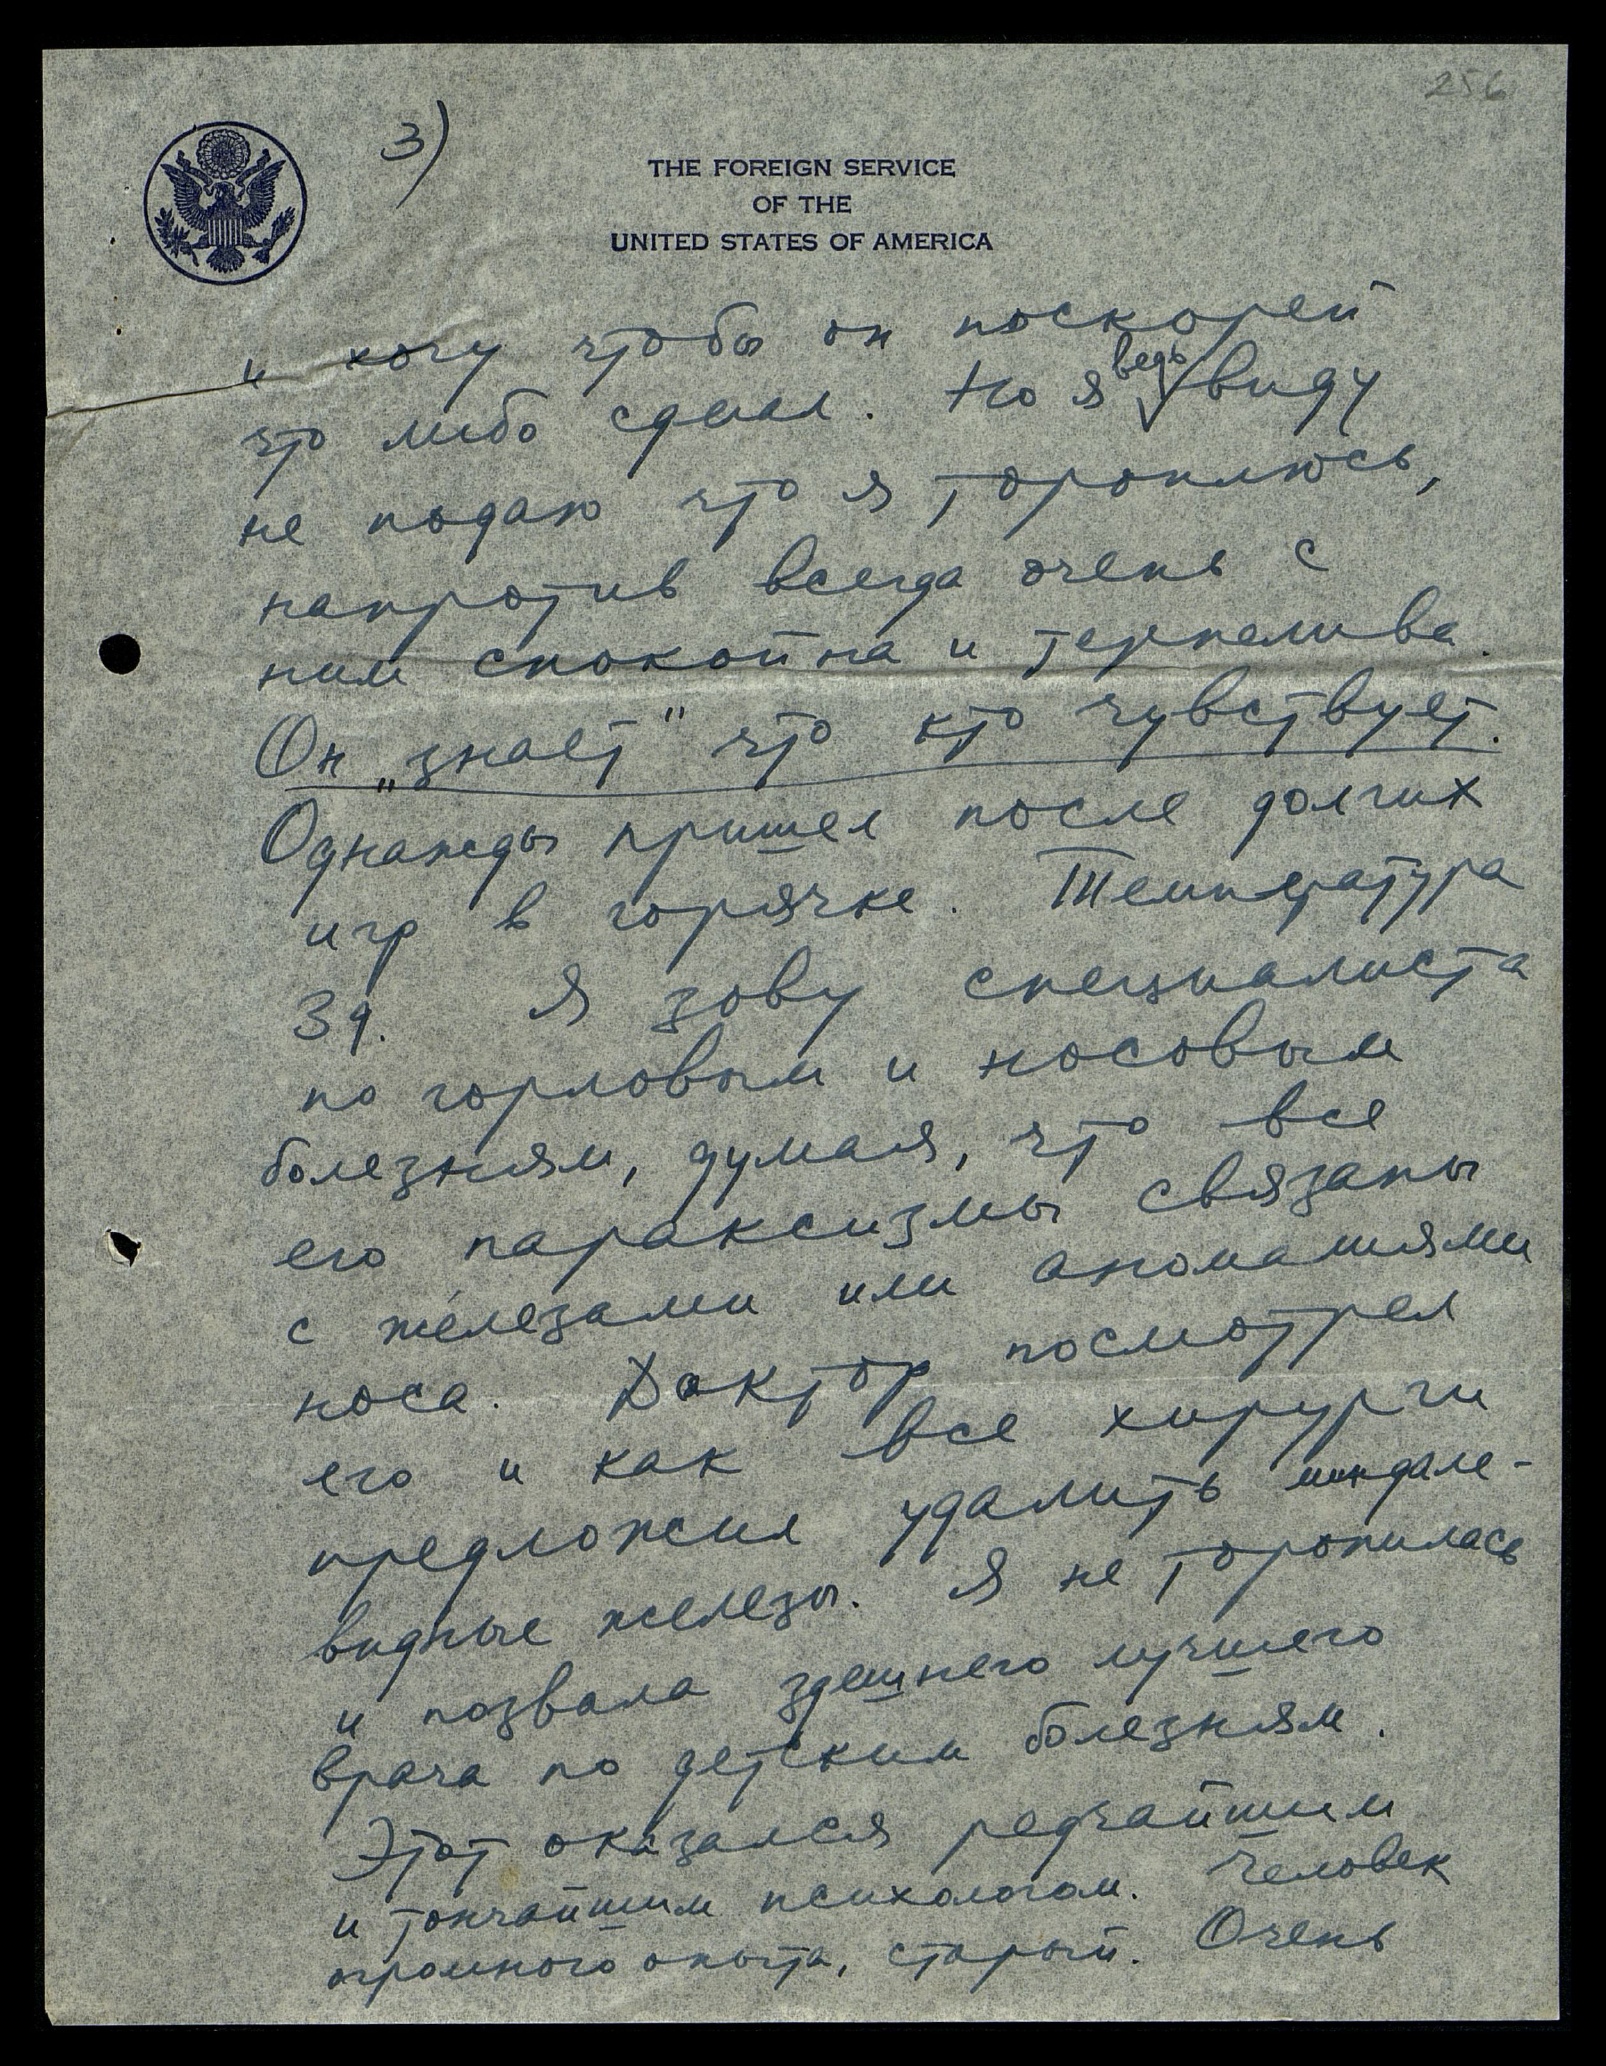 256
3)
THE FOREIGN SERVICE
OF THE
UNITED STATES OF AMERICA
и хочу чтобы он поскорей
что либо сделал. Но я ведь виду
не подаю что я тороплюсь,
напротив всегда очень с
ним спокойна и терпелива.
Он „знает" что кто чувствует.
Однажды пришел после долгих
игр в горячке. Температура
39. Я зову специалиста
по горловым и носовым
болезням, думая, что все
его параксизмы связаны
с железами или аномалиями
носа. Доктор посмотрел
его и как все хирурги
предложил удалить миндале-
видные железы. Я не торопилась
и позвала здешнего лучшего
врача по детским болезням.
Этот оказался редчайшим
и тончайшим психологом. Человек
огромного опыта, старый. Очень